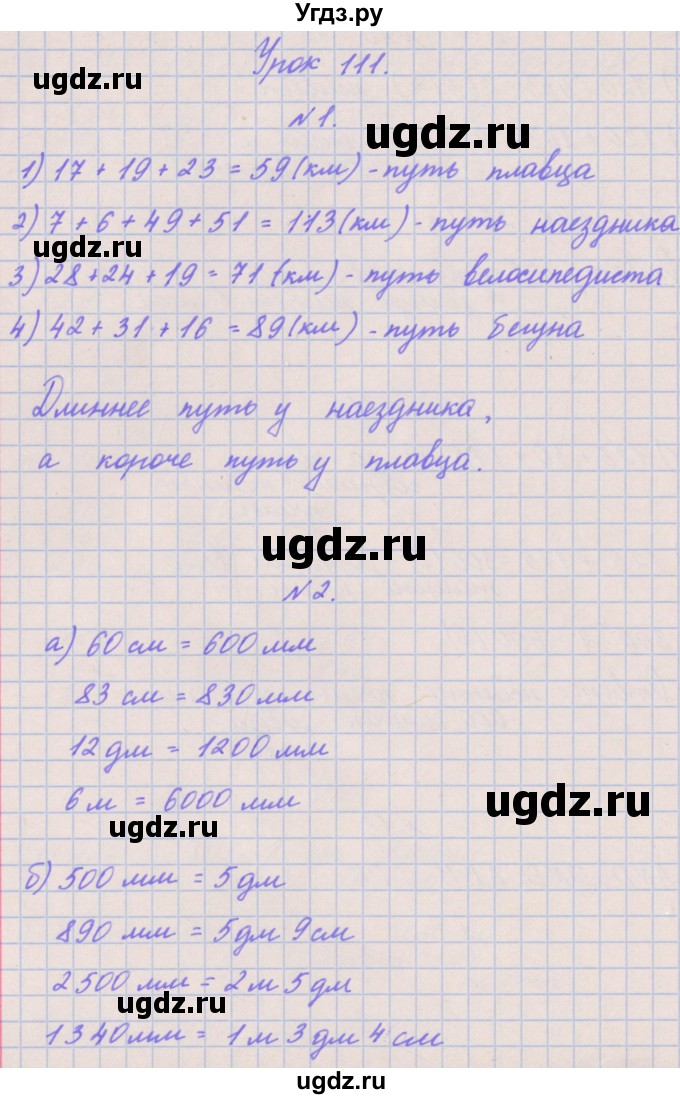 Угдз.ру
Урок 111.
ugdz.ru
№1.
ugdz.ru
1) 17 + 19 + 23 = 59 (км) - путь плавца
2) 7 + 6 + 49 + 51 = 113 (км) - путь наездника
ugdz.ru
3) 28 + 24 + 19 = 71 (км) - путь велосипедиста
4) 42 + 31 + 16 = 89 (км) - путь бегуна
Длиннее путь у наездника,
а короче путь у плавца.
ugdz.ru
№2.
а) 60 см = 600 мм
83 см = 830 мм
12 дм = 1200 мм
6 м = 6000 мм
ugdz.ru
ugdz.ru
б) 500 мм = 5 дм
890 мм = 5 дм 9 см
2500 мм = 2 м 5 дм
ugdz.ru
1340 мм = 1 м 3 дм 4 см
ugdz.ru